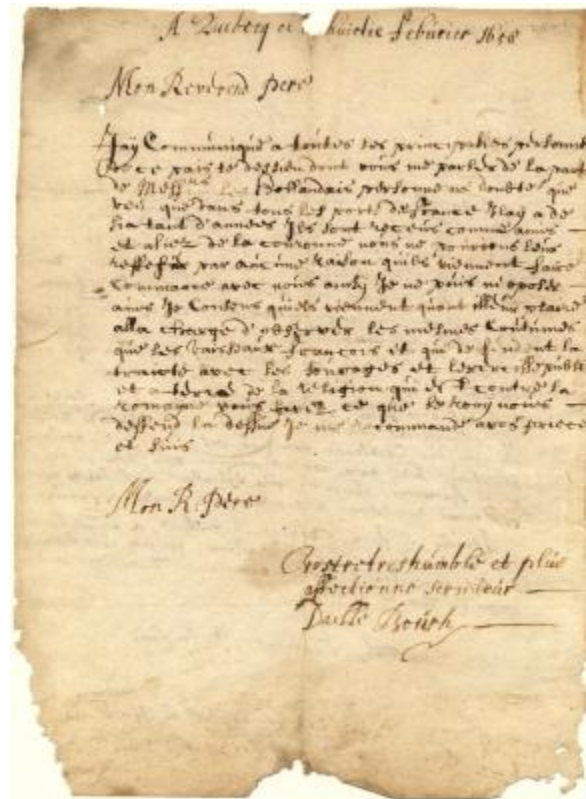 A Quebecq ce huictie febvrier 1658
Mon Reverend pere
Jay Communiqué a toutes les principalles personnes
de ce pais le dessien dont vous me parlez de la part
de Messrs les Hollandais personne ne doubte que
veu que dans tous les ports de france Il y a de
sia tant d'années Ils sont receus comme amis
et aliez de la couronne nous ne pouvons leur
reffeser par aucune raison quils viennent faire
Commerce avec nous aussy Je ne puis m'oposer
ains Je Consens quils viennent quant il leur plaira
alla charge d'observer les mesmes Coutumes
que les vaisseaux francois et qui deffendent la
traicte avec les sauvages et lexercisse publi
et de la religion qui est Contre la
romaine vous savez ce que le roy nous
deffend la dessus Je me recommande a vos prieres
et suis
Mon R. Pere
Vostre tres humble et plus
affectionne serviteur
Daille